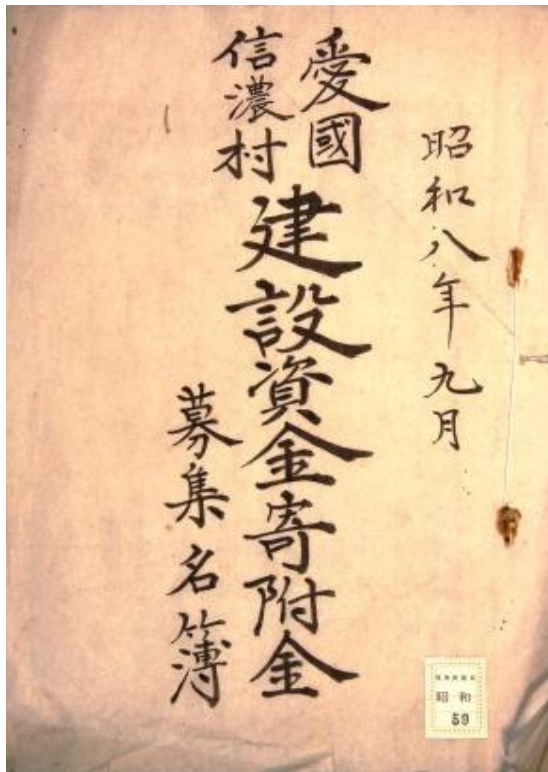 昭和八年九月
愛國
信濃村
建設資金寄附金
募集名簿
昭和
59